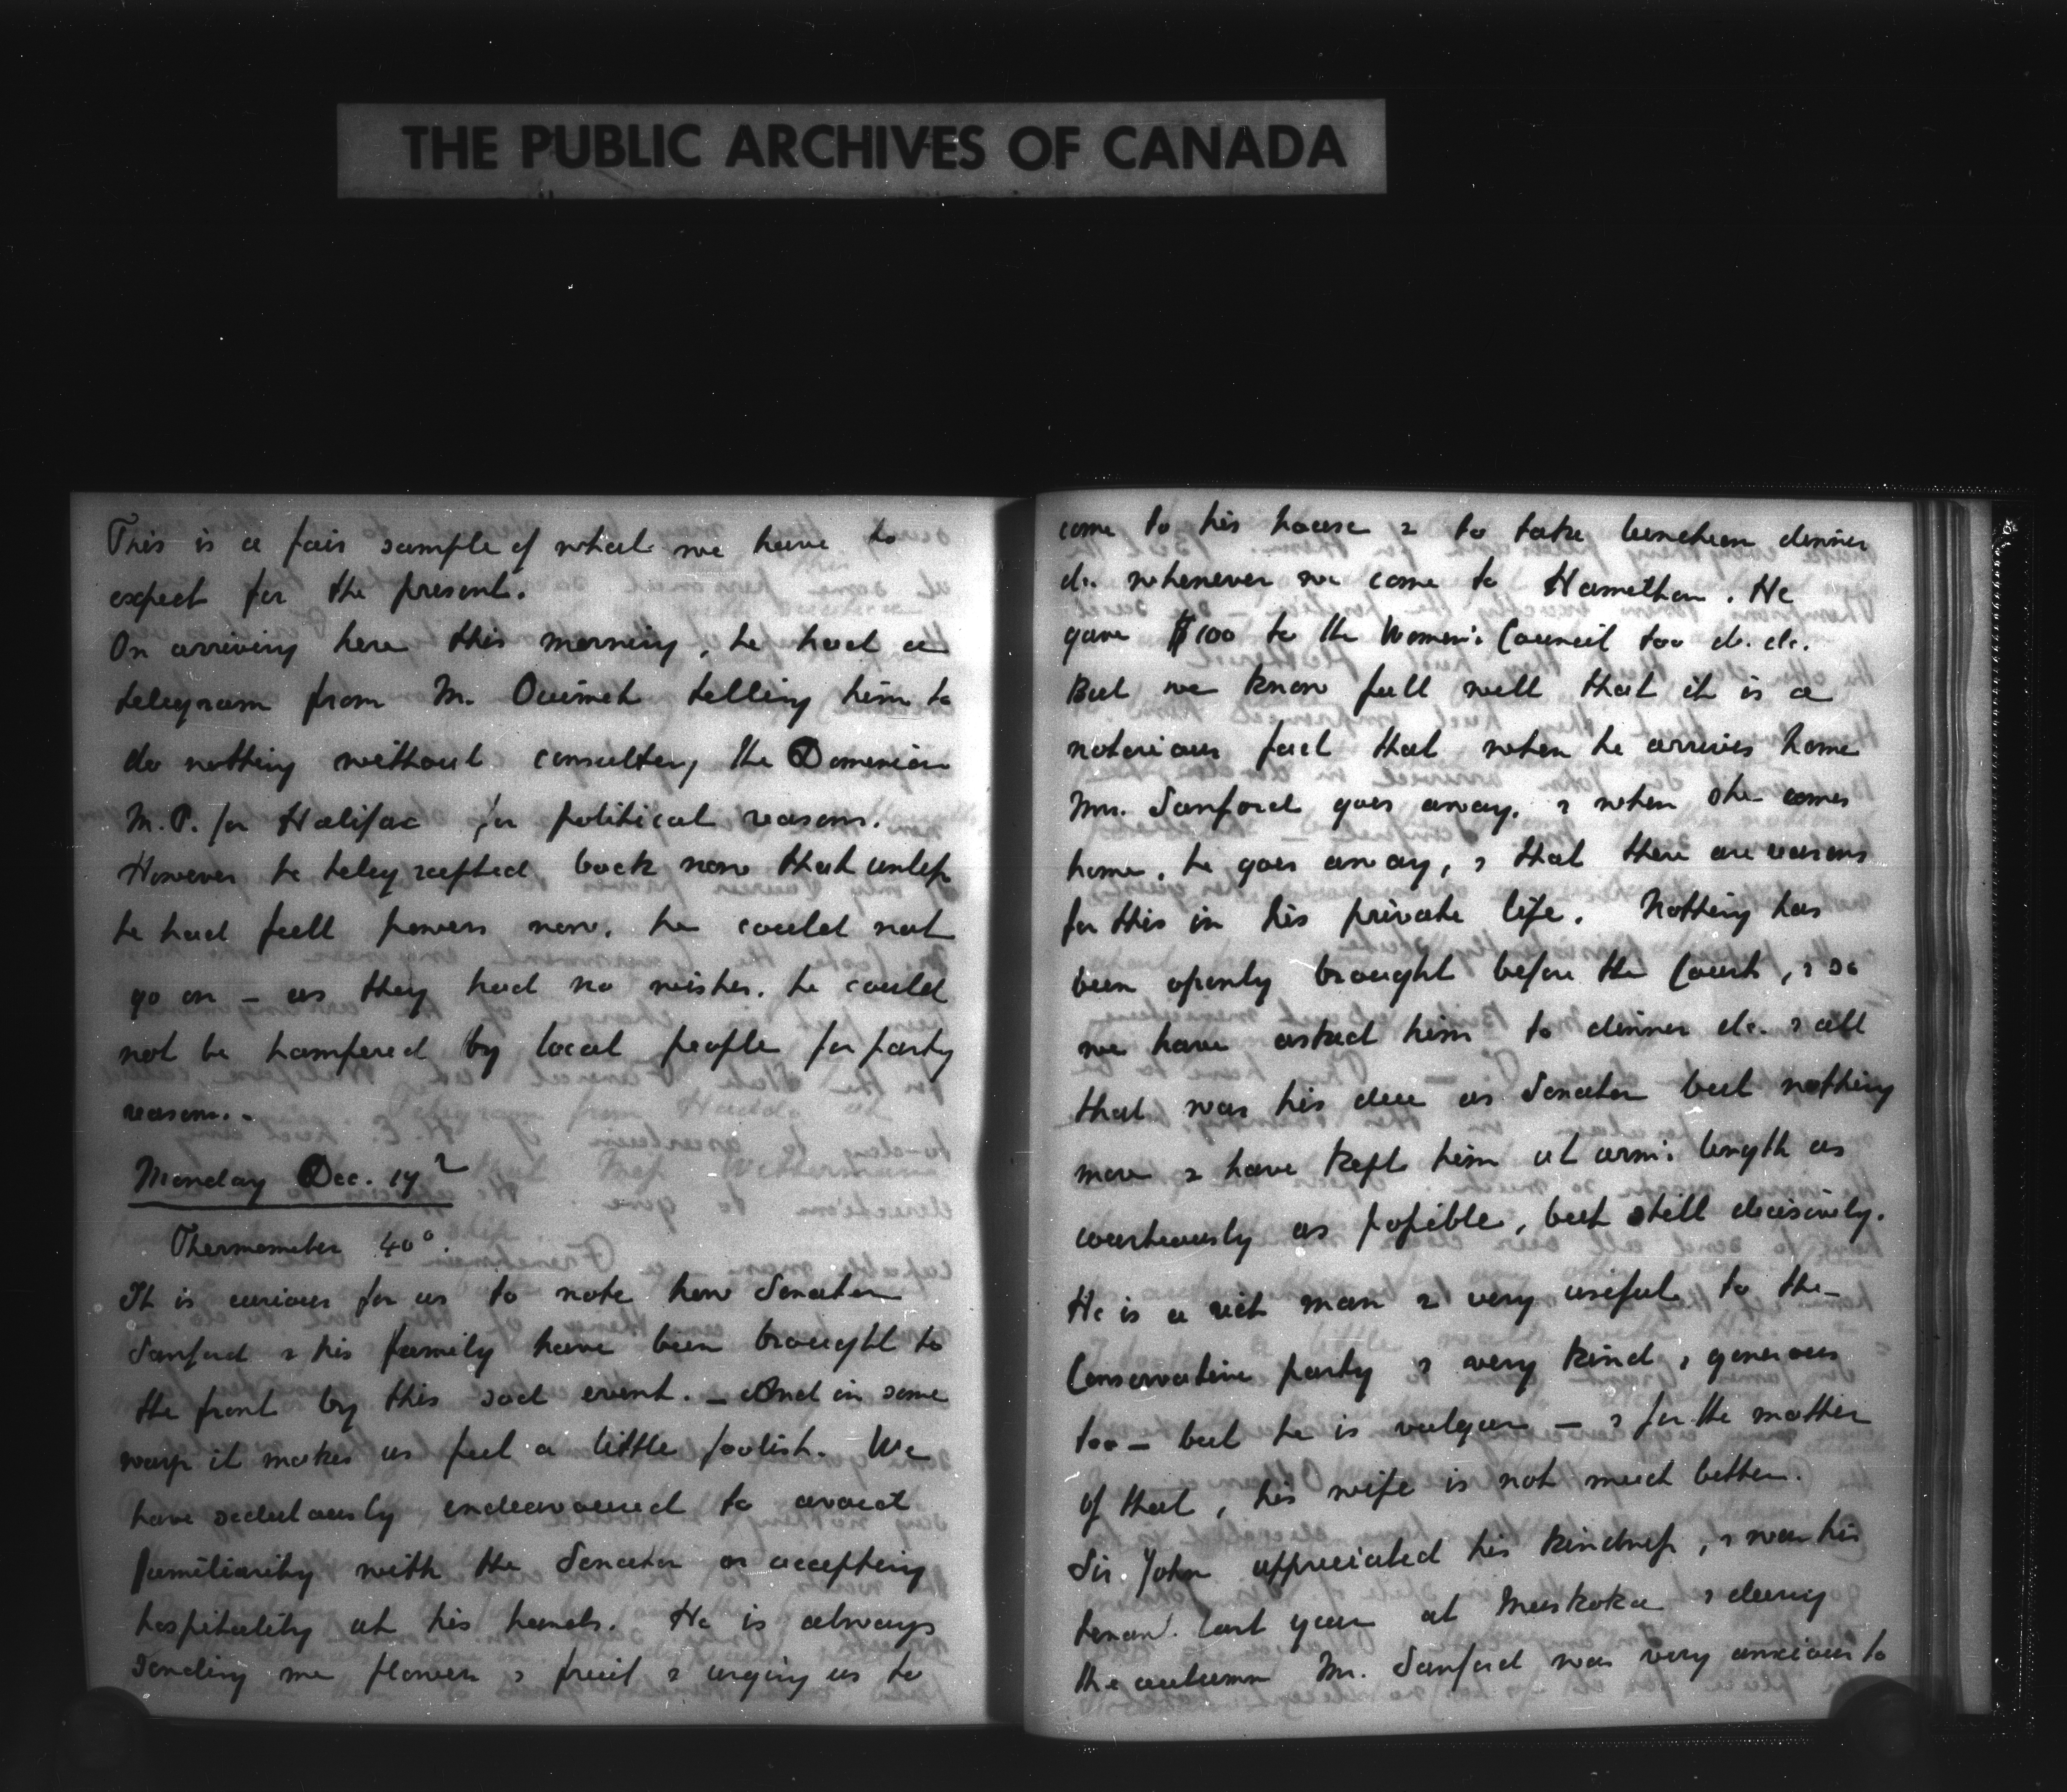 THE PUBLIC ARCHIVES OF CANADA
This is a fair sample of what we have to
expect for the present.
On arriving here this morning, he had a
telegram from M. Ouimet telling him to
do nothing without consulting the Dominion
M.P. for Halifax for political reasons.
However he telegraphed back now that unless
he had full powers now, he could not
go on – as they had no wishes. he could
not be hampered by local people for party
reasons. -
Monday Dec. 17
Thermometer 40°.
It is curious for us to note how Senator
Sanford & his family have been brought to
the front by this sad event. – And in some
ways it makes us feel a little foolish. We
have sedulously endeavoured to avoid
familiarity with the Senator or accepting
hospitality at his hands. He is always
sending me flowers & fruit & urging us to
come to his house & to take luncheon dinner
&c. whenever we come to Hamilton. He
gave $100 to the Women's Council too &c. &c.
But we know full well that it is a
notorious fact that when he arrives home
Mrs. Sanford goes away, & when she comes
home, he goes away, & that there are reasons
for this in his private life. Nothing has
been openly brought before the Court, & so
we have asked him to dinner &c. & all
that was his due as Senator but nothing
more & have kept him at arm's length as
courteously as possible, but still decisively.
He is a rich man & very useful to the
Conservative party & very kind & generous
too – but he is vulgar – & for the matter
of that, his wife is not much better.
Sir John appreciated his kindness, & was his
tenant last year at Muskoka & during
the autumn Mr. Sanford was very anxious to